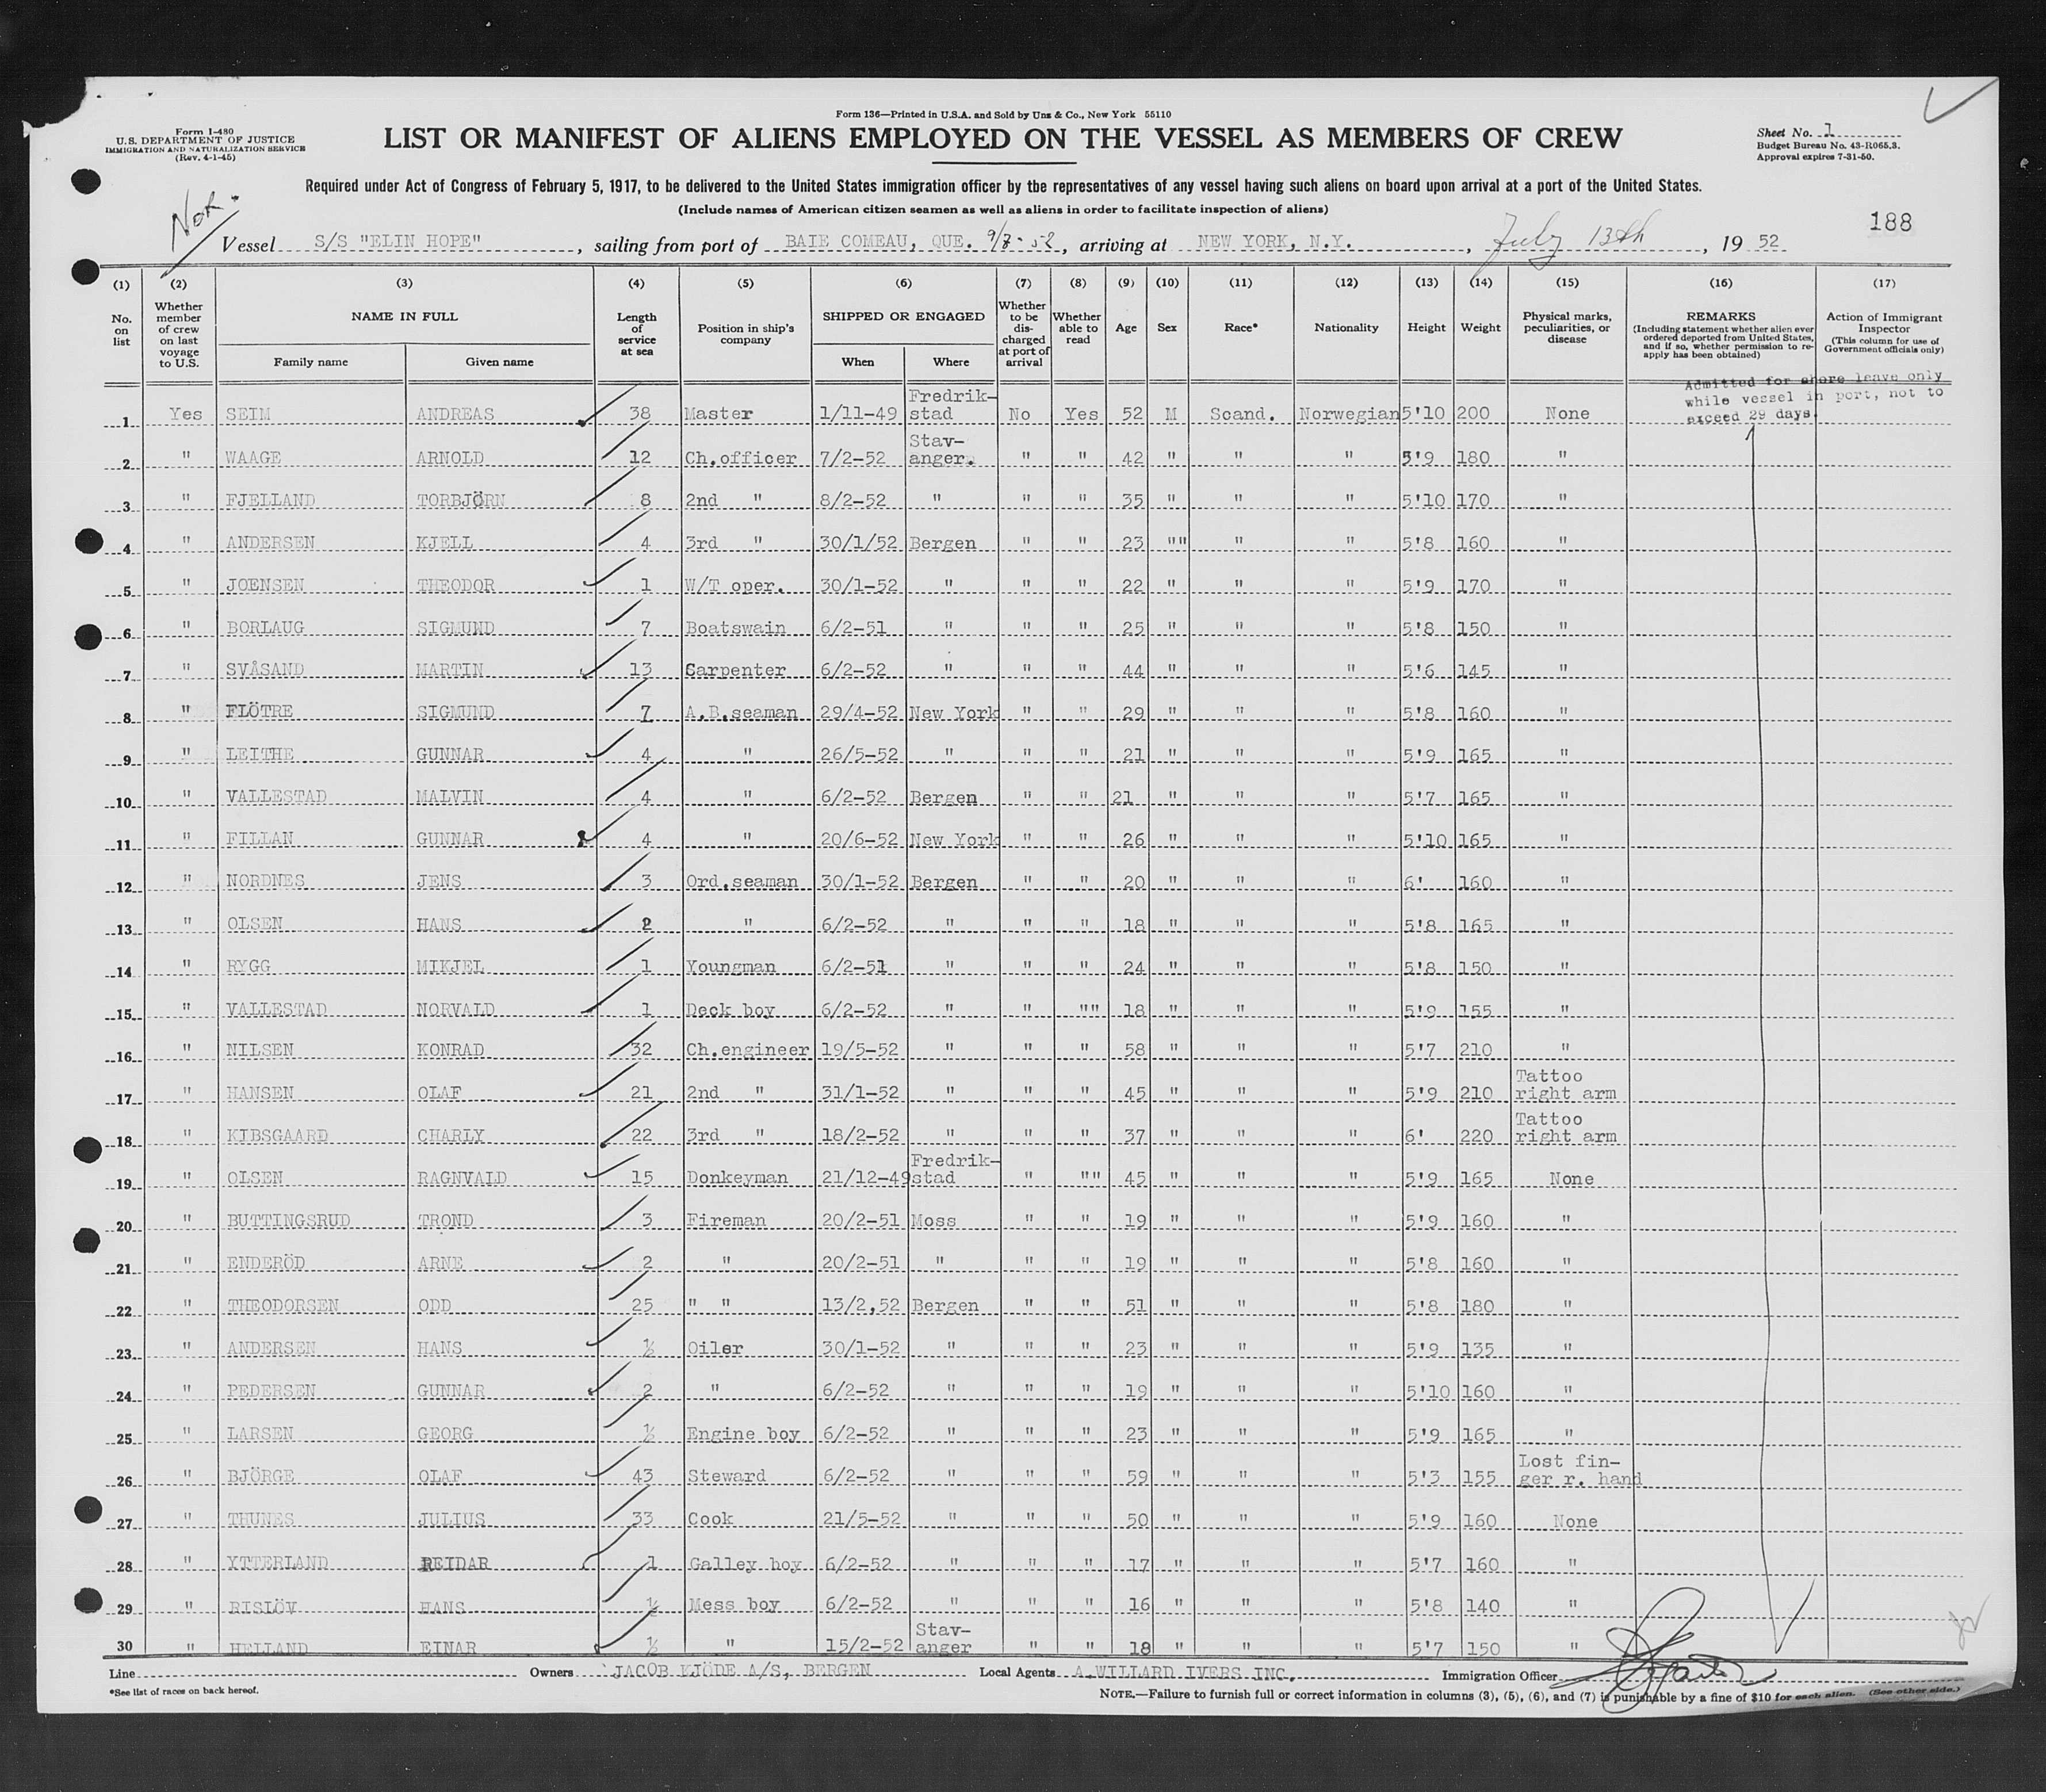 Form 136—Printed in U.S.A. and Sold by Unz & Co., New York 55110
Form I-480
U.S. DEPARTMENT OF JUSTICE
IMMIGRATION AND NATURALIZATION SERVICE
(Rev. 4-1-45)
LIST OR MANIFEST OF ALIENS EMPLOYED ON THE VESSEL AS MEMBERS OF CREW
Sheet No. 1
Budget Bureau No. 43-R065.3.
Approval expires 7-31-50.
Required under Act of Congress of February 5, 1917, to be delivered to the United States immigration officer by the representatives of any vessel having such aliens on board upon arrival at a port of the United States.
(Include names of American citizen seamen as well as aliens in order to facilitate inspection of aliens)
Nor.
188
Vessel S/S "ELIN HOPE", sailing from port of BAIE COMEAU, QUE. 9/7-52, arriving at NEW YORK, N.Y., July 13th, 19 52
(1) (2) (3) (4) (5) (6) (7) (8) (9) (10) (11) (12) (13) (14) (15) (16) (17)
No. on list
Whether member of crew on last voyage to U.S.
NAME IN FULL
Family name Given name
Length of service at sea
Position in ship's company
SHIPPED OR ENGAGED
When Where
Whether to be discharged at port of arrival
Whether able to read
Age Sex Race* Nationality Height Weight
Physical marks, peculiarities, or disease
REMARKS
(Including statement whether alien ever ordered deported from United States, and if so, whether permission to reapply has been obtained)
Action of Immigrant Inspector
(This column for use of Government officials only)
Admitted for shore leave only
while vessel in port, not to
exceed 29 days
1 Yes SEIM ANDREAS 38 Master 1/11-49 Fredrik-stad No Yes 52 M Scand. Norwegian 5'10 200 None
2 " WAAGE ARNOLD 12 Ch.officer 7/2-52 Stav-anger. " " 42 " " " 5'9 180 "
3 " FJELLAND TORBJÖRN 8 2nd " 8/2-52 " " " 35 " " " 5'10 170 "
4 " ANDERSEN KJELL 4 3rd " 30/1/52 Bergen " " 23 "" " " 5'8 160 "
5 " JOENSEN THEODOR 1 W/T oper. 30/1-52 " " " 22 " " " 5'9 170 "
6 " BORLAUG SIGMUND 7 Boatswain 6/2-51 " " " 25 " " " 5'8 150 "
7 " SVÅSAND MARTIN 13 Carpenter 6/2-52 " " " 44 " " " 5'6 145 "
8 " FLÖTRE SIGMUND 7 A.B.seaman 29/4-52 New York " " 29 " " " 5'8 160 "
9 " LEITHE GUNNAR 4 " 26/5-52 " " " 21 " " " 5'9 165 "
10 " VALLESTAD MALVIN 4 " 6/2-52 Bergen " " 21 " " " 5'7 165 "
11 " FILLAN GUNNAR 4 " 20/6-52 New York " " 26 " " " 5'10 165 "
12 " NORDNES JENS 3 Ord.seaman 30/1-52 Bergen " " 20 " " " 6' 160 "
13 " OLSEN HANS 2 " 6/2-52 " " " 18 " " " 5'8 165 "
14 " RYGG MIKJEL 1 Youngman 6/2-51 " " " 24 " " " 5'8 150 "
15 " VALLESTAD NORVALD 1 Deck boy 6/2-52 " " "" 18 " " " 5'9 155 "
16 " NILSEN KONRAD 32 Ch.engineer 19/5-52 " " " 58 " " " 5'7 210 "
17 " HANSEN OLAF 21 2nd " 31/1-52 " " " 45 " " " 5'9 210 Tattoo right arm
18 " KIBSGAARD CHARLY 22 3rd " 18/2-52 " " " 37 " " " 6' 220 Tattoo right arm
19 " OLSEN RAGNVALD 15 Donkeyman 21/12-49 Fredrik-stad " "" 45 " " " 5'9 165 None
20 " BUTTINGSRUD TROND 3 Fireman 20/2-51 Moss " " 19 " " " 5'9 160 "
21 " ENDERÖD ARNE 2 " 20/2-51 " " " 19 " " " 5'8 160 "
22 " THEODORSEN ODD 25 " " 13/2,52 Bergen " " 51 " " " 5'8 180 "
23 " ANDERSEN HANS ½ Oiler 30/1-52 " " " 23 " " " 5'9 135 "
24 " PEDERSEN GUNNAR 2 " 6/2-52 " " " 19 " " " 5'10 160 "
25 " LARSEN GEORG ½ Engine boy 6/2-52 " " " 23 " " " 5'9 165 "
26 " BJÖRGE OLAF 43 Steward 6/2-52 " " " 59 " " " 5'3 155 Lost fin-ger r. hand
27 " THUNES JULIUS 33 Cook 21/5-52 " " " 50 " " " 5'9 160 None
28 " YTTERLAND REIDAR 1 Galley boy 6/2-52 " " " 17 " " " 5'7 160 "
29 " RISLÖV HANS ½ Mess boy 6/2-52 " " " 16 " " " 5'8 140 "
30 " HELLAND EINAR ½ " 15/2-52 Stav-anger " " 18 " " " 5'7 150 "
Line Owners JACOB KJÖDE A/S, BERGEN Local Agents A.WILLARD IVERS INC. Immigration Officer
*See list of races on back hereof.
NOTE.—Failure to furnish full or correct information in columns (3), (5), (6), and (7) is punishable by a fine of $10 for each alien. (See other side.)